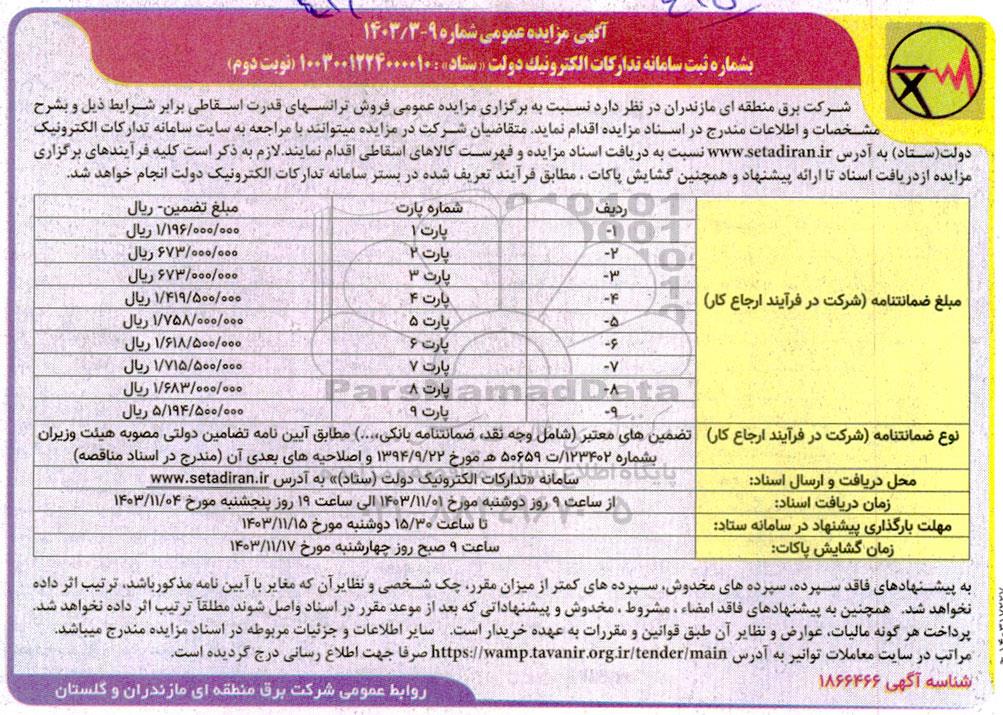 آگهی مزایده عمومی شماره ۹-۱۴۰۳/۳
بشماره ثبت سامانه تدارکات الکترونیک دولت «ستاد» : ۱۰۰۳۰۰۱۲۲۴۰۰۰۰۱۰ (نوبت دوم)
شرکت برق منطقه ای مازندران در نظر دارد نسبت به برگزاری مزایده عمومی فروش ترانسهای قدرت اسقاطی برابر شرایط ذیل و بشرح
مشخصات و اطلاعات مندرج در اسناد مزایده اقدام نماید. متقاضیان شرکت در مزایده میتوانند با مراجعه به سایت سامانه تدارکات الکترونیک
دولت(ستاد) به آدرس www.setadiran.ir نسبت به دریافت اسناد مزایده و فهرست کالاهای اسقاطی اقدام نمایند.لازم به ذکر است کلیه فرآیندهای برگزاری
مزایده ازدریافت اسناد تا ارائه پیشنهاد و همچنین گشایش پاکات ، مطابق فرآیند تعریف شده در بستر سامانه تدارکات الکترونیک دولت انجام خواهد شد.
مبلغ ضمانتنامه (شرکت در فرآیند ارجاع کار)
ردیف شماره پارت مبلغ تضمین- ریال
۱- پارت ۱ ۱/۱۹۶/۰۰۰/۰۰۰ ریال
۲- پارت ۲ ۶۷۳/۰۰۰/۰۰۰ ریال
۳- پارت ۳ ۶۷۳/۰۰۰/۰۰۰ ریال
۴- پارت ۴ ۱/۴۱۹/۵۰۰/۰۰۰ ریال
۵- پارت ۵ ۱/۷۵۸/۰۰۰/۰۰۰ ریال
۶- پارت ۶ ۱/۶۱۸/۵۰۰/۰۰۰ ریال
۷- پارت ۷ ۱/۷۱۵/۵۰۰/۰۰۰ ریال
۸- پارت ۸ ۱/۶۸۳/۰۰۰/۰۰۰ ریال
۹- پارت ۹ ۵/۱۹۴/۵۰۰/۰۰۰ ریال
نوع ضمانتنامه (شرکت در فرآیند ارجاع کار) تضمین های معتبر (شامل وجه نقد، ضمانتنامه بانکی،...) مطابق آیین نامه تضامین دولتی مصوبه هیئت وزیران
بشماره ۱۲۳۴۰۲/ت ۵۰۶۵۹ هـ مورخ ۱۳۹۴/۹/۲۲ و اصلاحیه های بعدی آن (مندرج در اسناد مناقصه)
محل دریافت و ارسال اسناد: سامانه «تدارکات الکترونیک دولت (ستاد)» به آدرس www.setadiran.ir
زمان دریافت اسناد: از ساعت ۹ روز دوشنبه مورخ ۱۴۰۳/۱۱/۰۱ الی ساعت ۱۹ روز پنجشنبه مورخ ۱۴۰۳/۱۱/۰۴
مهلت بارگذاری پیشنهاد در سامانه ستاد: تا ساعت ۱۵/۳۰ دوشنبه مورخ ۱۴۰۳/۱۱/۱۵
زمان گشایش پاکات: ساعت ۹ صبح روز چهارشنبه مورخ ۱۴۰۳/۱۱/۱۷
به پیشنهادهای فاقد سپرده، سپرده های مخدوش، سپرده های کمتر از میزان مقرر، چک شخصی و نظایرآن که مغایر با آیین نامه مذکورباشد، ترتیب اثر داده
نخواهد شد. همچنین به پیشنهادهای فاقد امضاء ، مشروط ، مخدوش و پیشنهاداتی که بعد از موعد مقرر در اسناد واصل شوند مطلقاً ترتیب اثر داده نخواهد شد.
پرداخت هر گونه مالیات، عوارض و نظایر آن طبق قوانین و مقررات به عهده خریدار است. سایر اطلاعات و جزئیات مربوطه در اسناد مزایده مندرج میباشد.
مراتب در سایت معاملات توانیر به آدرس https://wamp.tavanir.org.ir/tender/main صرفا جهت اطلاع رسانی درج گردیده است.
شناسه آگهی ۱۸۶۶۴۶۶
روابط عمومی شرکت برق منطقه ای مازندران و گلستان
ParsNamadData